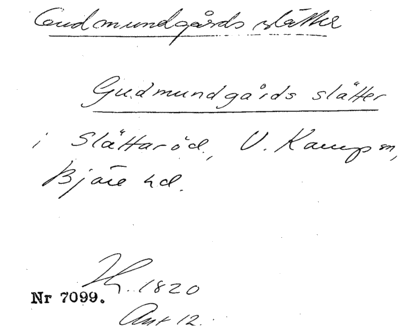 Gudmundgårds slätter
Gudmundgårds slätter
i Slättaröd, V. Karup sn,
Bjäre hd.
1820
Nr 7099.
Ant 12.